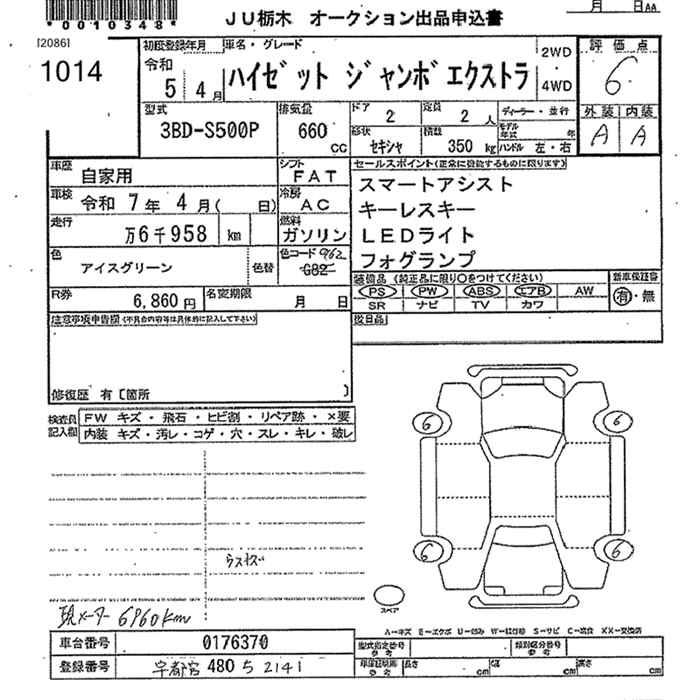 *0010348*
JU栃木 オークション出品申込書
月 日AA
[2086]
1014
初度登録年月 車名・グレード
令和 5年 4月
ハイゼット ジャンボエクストラ
2WD
4WD
評価点
6
外装 内装
A A
型式
3BD-S500P
排気量
660 CC
ドア 2
定員 2人
ディーラー・並行
モデル年式 年
形状 セキシャ
積載 350 kg
ハンドル 左・右
車歴 自家用
シフト FAT
セールスポイント(正常に機能するものに限ります)
スマートアシスト
キーレスキー
LEDライト
フォグランプ
車検 令和 7年 4月( 日)
冷房 AC
走行 万6千958 km
燃料 ガソリン
色 アイスグリーン
色替
色コード 962
G82
装備品 (純正品に限り○をつけてください)
新車保証書
PS PW ABS エアB AW
有・無
SR ナビ TV カワ
R券 6,860円
名変期限 月 日
後日品
注意事項申告欄(不具合内容等は具体的に記入して下さい)
修復歴 有〔箇所 〕
検査員記入欄
FW キズ・飛石・ヒビ割・リペア跡・×要
内装 キズ・汚レ・コゲ・穴・スレ・キレ・破レ
6 6
6 6
スペア
ラスキズ
現メーター 6960km
A-キズ E-エクボ U-凹み W-補修跡 S-サビ C-腐食 XX-交換済
車台番号 0176370
型式指定番号 参考
類別区分番号 参考
登録番号 宇都宮 480 さ 2141
車検証明書 参考
長さ cm 幅 cm 高さ cm